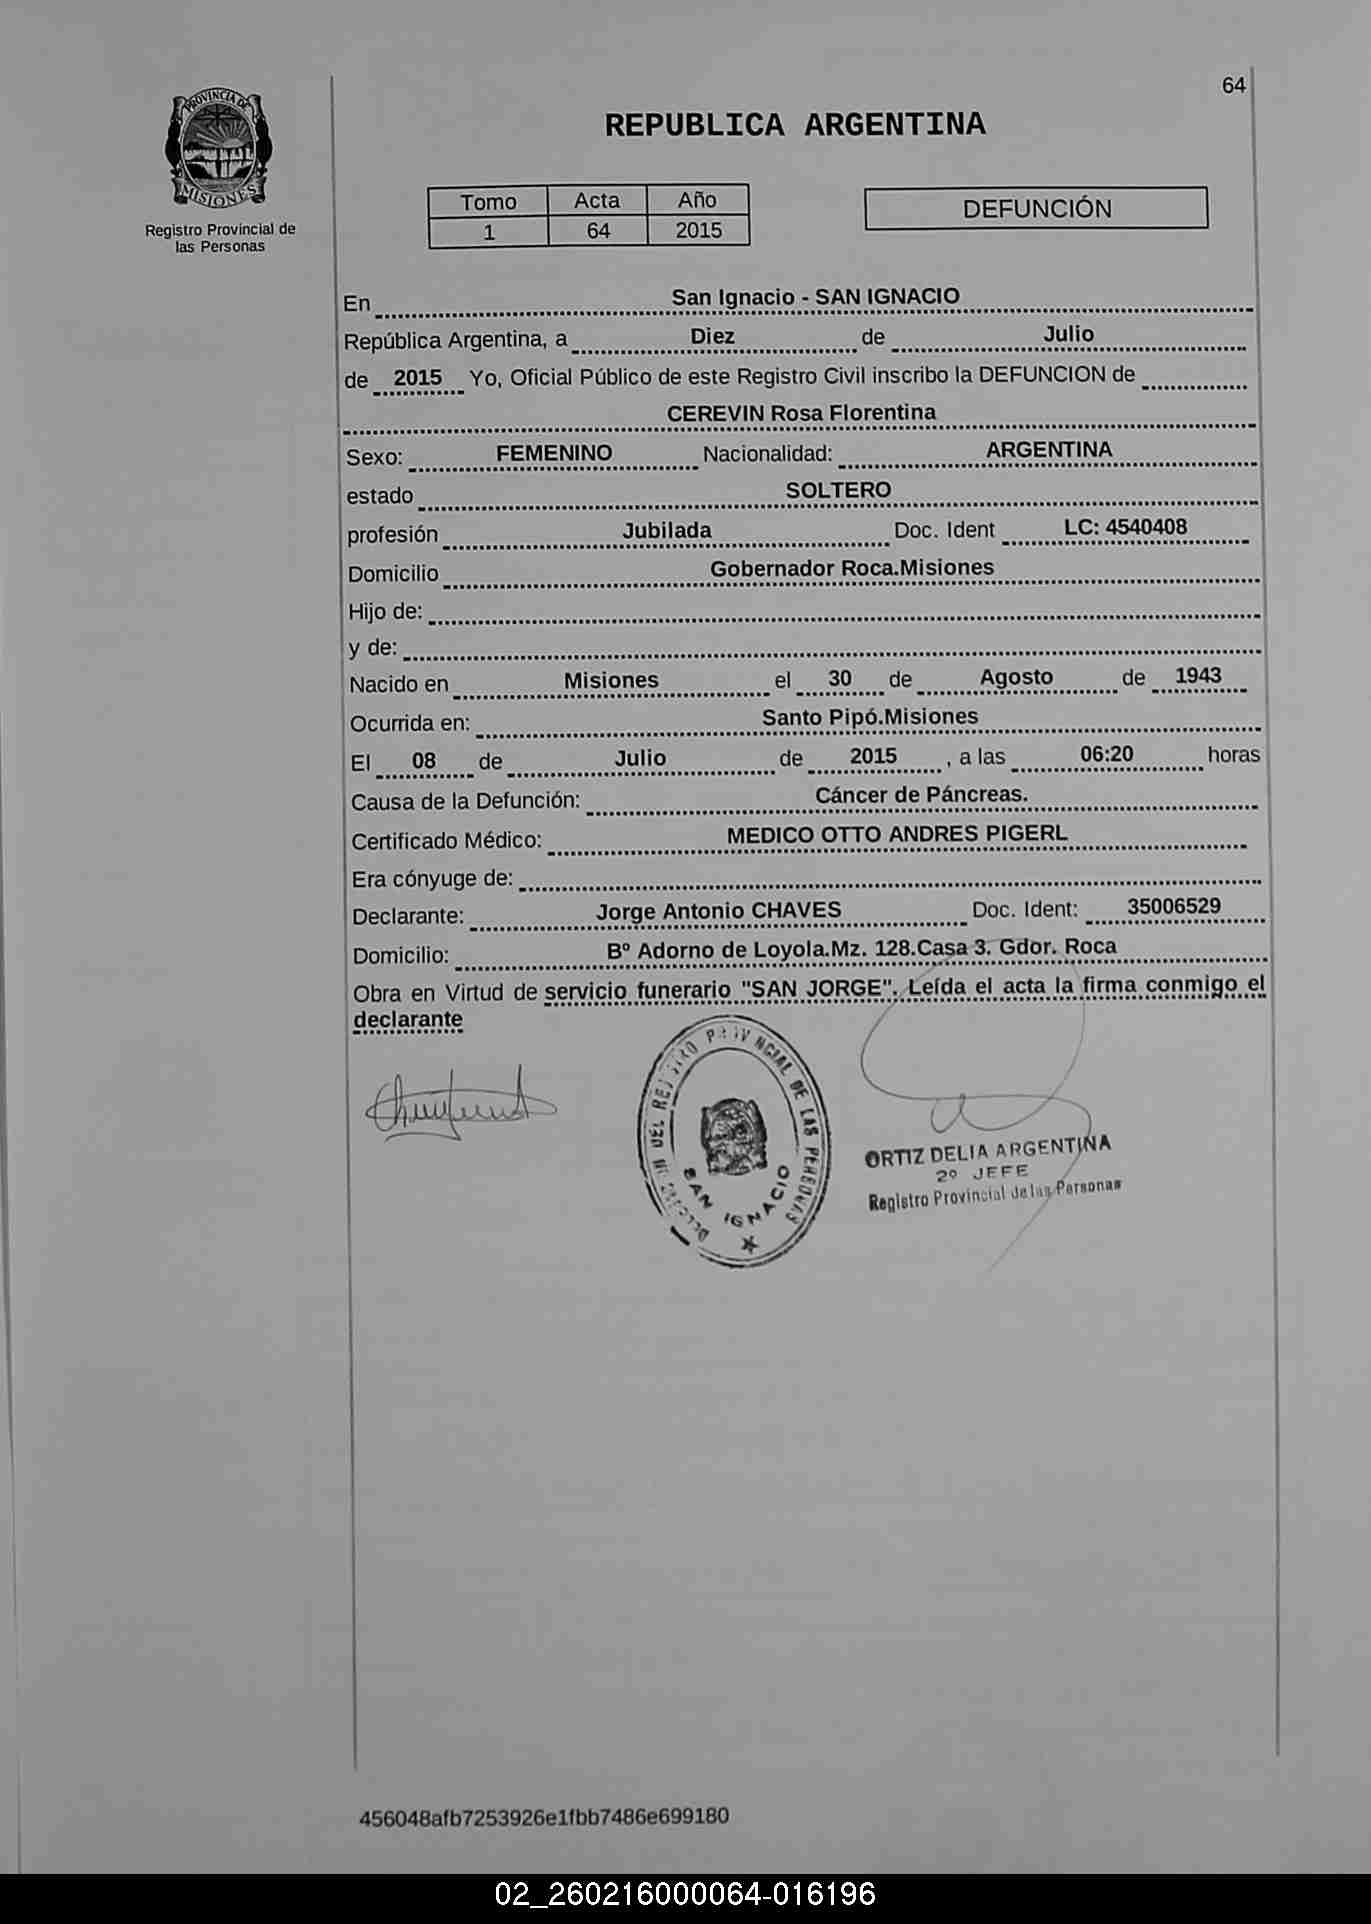 64
PROVINCIA DE
MISIONES
Registro Provincial de
las Personas
REPUBLICA ARGENTINA
Tomo Acta Año
1 64 2015
DEFUNCIÓN
En San Ignacio - SAN IGNACIO
República Argentina, a Diez de Julio
de 2015 Yo, Oficial Público de este Registro Civil inscribo la DEFUNCION de
CEREVIN Rosa Florentina
Sexo: FEMENINO Nacionalidad: ARGENTINA
estado SOLTERO
profesión Jubilada Doc. Ident LC: 4540408
Domicilio Gobernador Roca.Misiones
Hijo de:
y de:
Nacido en Misiones el 30 de Agosto de 1943
Ocurrida en: Santo Pipó.Misiones
El 08 de Julio de 2015 , a las 06:20 horas
Causa de la Defunción: Cáncer de Páncreas.
Certificado Médico: MEDICO OTTO ANDRES PIGERL
Era cónyuge de:
Declarante: Jorge Antonio CHAVES Doc. Ident: 35006529
Domicilio: Bº Adorno de Loyola.Mz. 128.Casa 3. Gdor. Roca
Obra en Virtud de servicio funerario "SAN JORGE". Leída el acta la firma conmigo el
declarante
DEL REGISTRO PROVINCIAL DE LAS PERSONAS
SAN IGNACIO
ORTIZ DELIA ARGENTINA
2º JEFE
Registro Provincial de las Personas
456048afb7253926e1fbb7486e699180
02_260216000064-016196